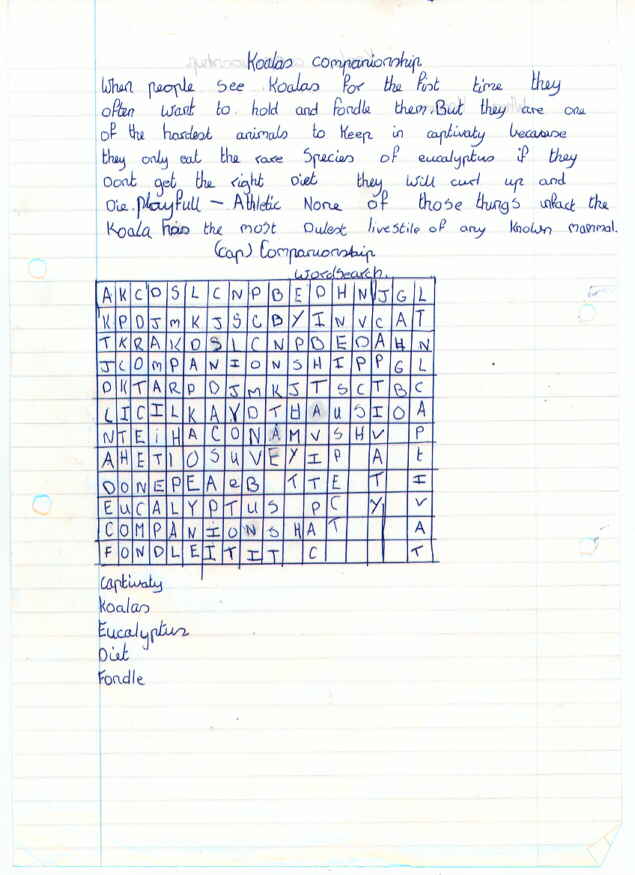 Koalas companionship
When people see Koalas for the first time they
often want to hold and fondle them. But they are one
of the hardest animals to keep in captivaty becausse
they only eat the rare species of eucalyptus if they
Dont get the right Diet they will curl up and
Die. Playfull - Athletic None of those things infact the
Koala has the most Dulest livestile of any Known mammal.
(cap) Companionship
wordsearch.
A K C O S L C N P B E D H N J G L
K P D J M K J S C B Y I N V C A T
T K R A K O S L C N P B E D A H N
J C O M P A N I O N S H I P P G L
D K T A R P D J M K J T S C T B C
L I C I L K A Y D T H A U S I O A
N T E i H A C O N A M V S H V P
A H E T I O S U V E Y I P A t
D O N E P E A e B T T E T I
E U C A L Y P T U S P C Y V
C O M P A N I O N S H A T A
F O N D L E I T I T C T
captivaty
Koalas
Eucalyptus
Diet
Fondle